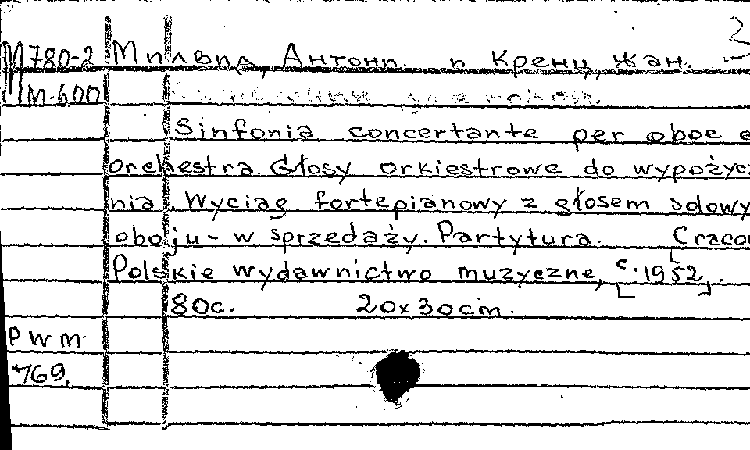 М780-2 Мильвид, Антони и Кренц, Жан. 2
М-600
Sinfonia concertante per oboe e
orchestra Głosy orkiestrowe do wypożyc
nia. Wyciąg fortepianowy z głosem solowy
oboju - w sprzedaży. Partytura. Craco
Polskie wydawnictwo muzyczne, [c.1952].
80с. 20х30cm.
PWM
769.